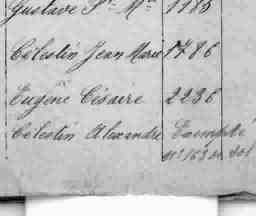 Gustave Fs. Me. 1188
Célestin Jean Marie 1786
Eugène Césaire 2236
Célestin Alexandre Exempté
nº 163 du vol